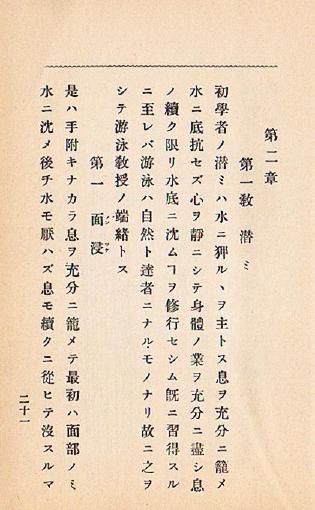 第二章
第一教 潜ミ
初學者ノ潜ミハ水ニ狎ルヽヲ主トス息ヲ充分ニ籠メ
水ニ底抗セズ心ヲ靜ニシテ身體ノ業ヲ充分ニ盡シ息
ノ續ク限リ水底ニ沈ムヿヲ修行セシム既ニ習得スル
ニ至レバ游泳ハ自然ト達者ニナル・モノナリ故ニ之ヲ
シテ游泳教授ノ端緒トス
第一 面浸
是ハ手附キナカラ息ヲ充分ニ籠メテ最初ハ面部ノミ
水ニ沈メ後チ水モ厭ハズ息モ續クニ從ヒテ沒スルマ
二十一